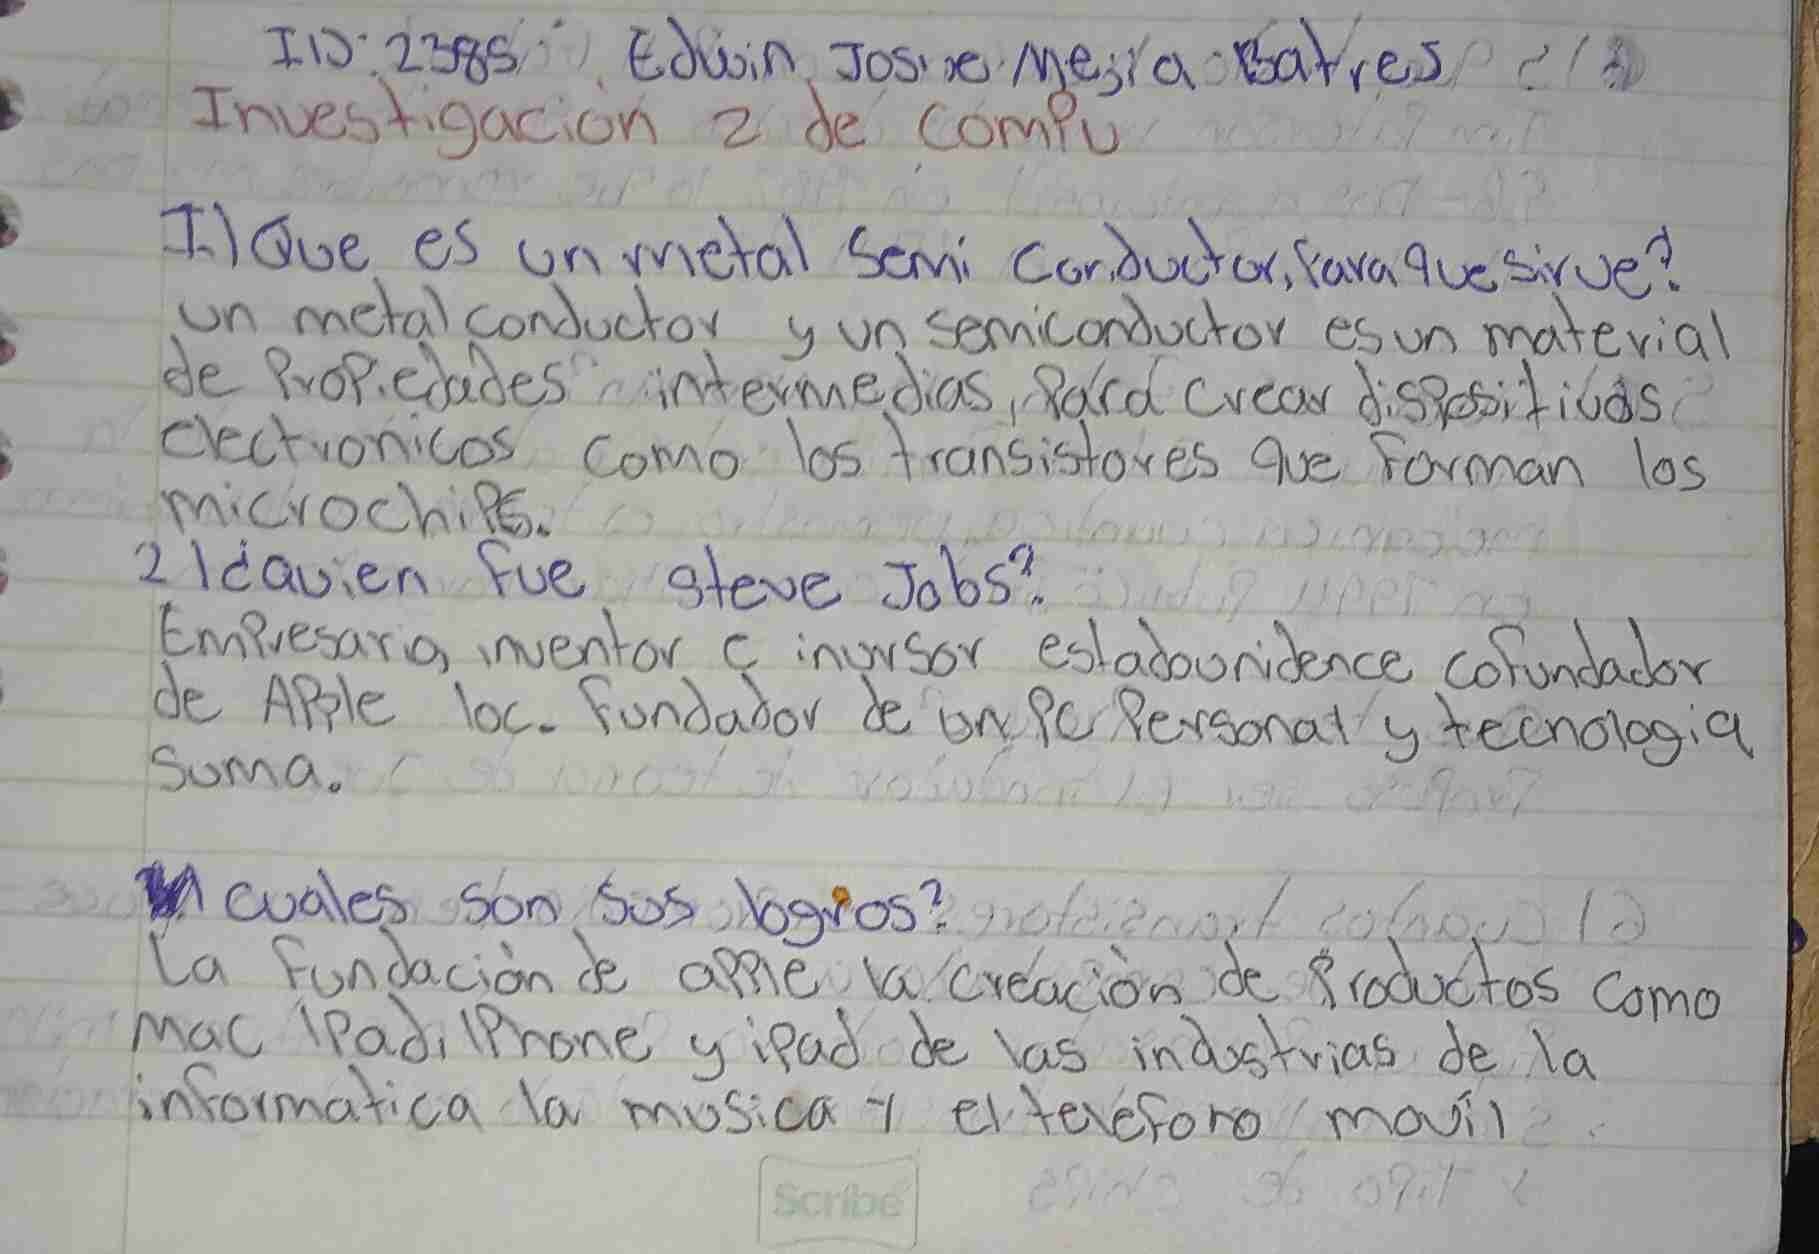 ID: 2385 Edwin Josue Mejia Batres
Investigación 2 de Compu
I.) Que es un metal Semi Conductor, Para que sirve?
un metal conductor y un semiconductor es un material
de Propiedades intermedias, Para crear dispositivos
electronicos como los transistores que Forman los
microchips.
2) ¿Quien fue Steve Jobs?
Empresario, inventor e inversor estadounidence cofundador
de Apple Ioc. Fundador de un PC Personal y tecnologia
Suma.
cuales son sus logros?
La Fundación de apple la creación de Productos como
Mac IPad, IPhone y iPad de las industrias de la
informatica la musica y el telefono movil
Scribe